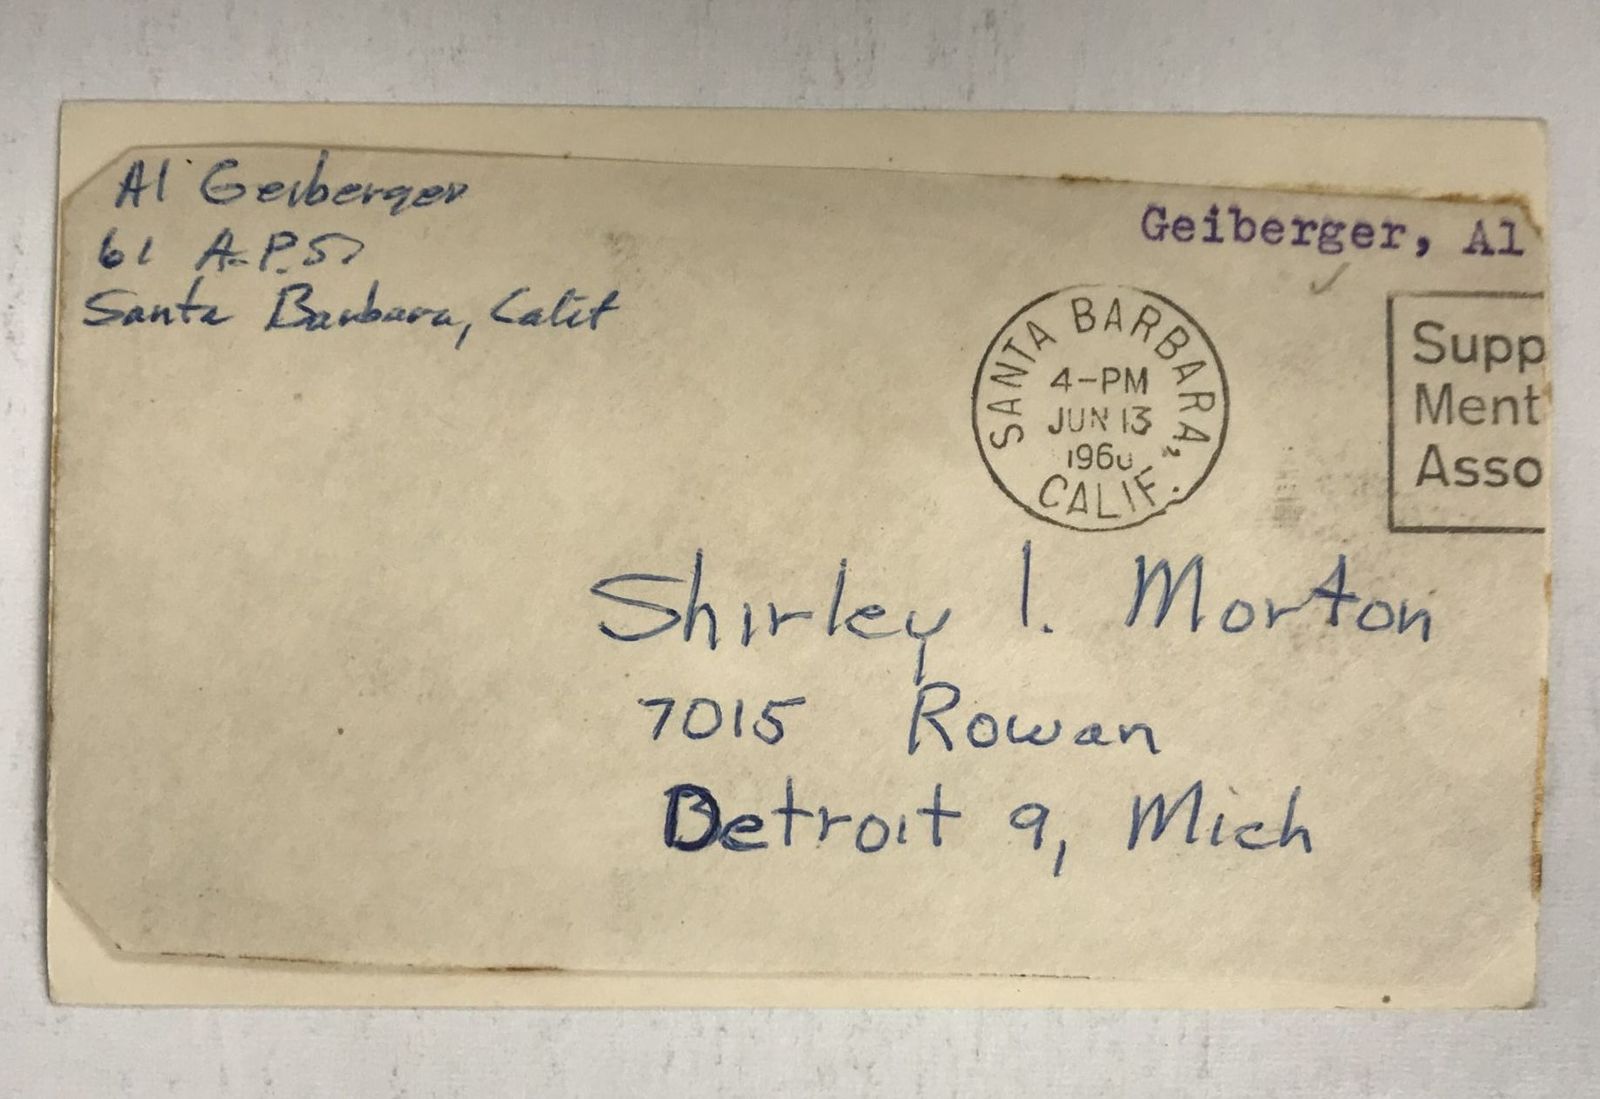 Al Geiberger
61 A.P.S7
Santa Barbara, Calif
Geiberger, Al
SANTA BARBARA, CALIF.
4-PM
JUN 13
1960
Supp
Ment
Asso
Shirley I. Morton
7015 Rowan
Detroit 9, Mich